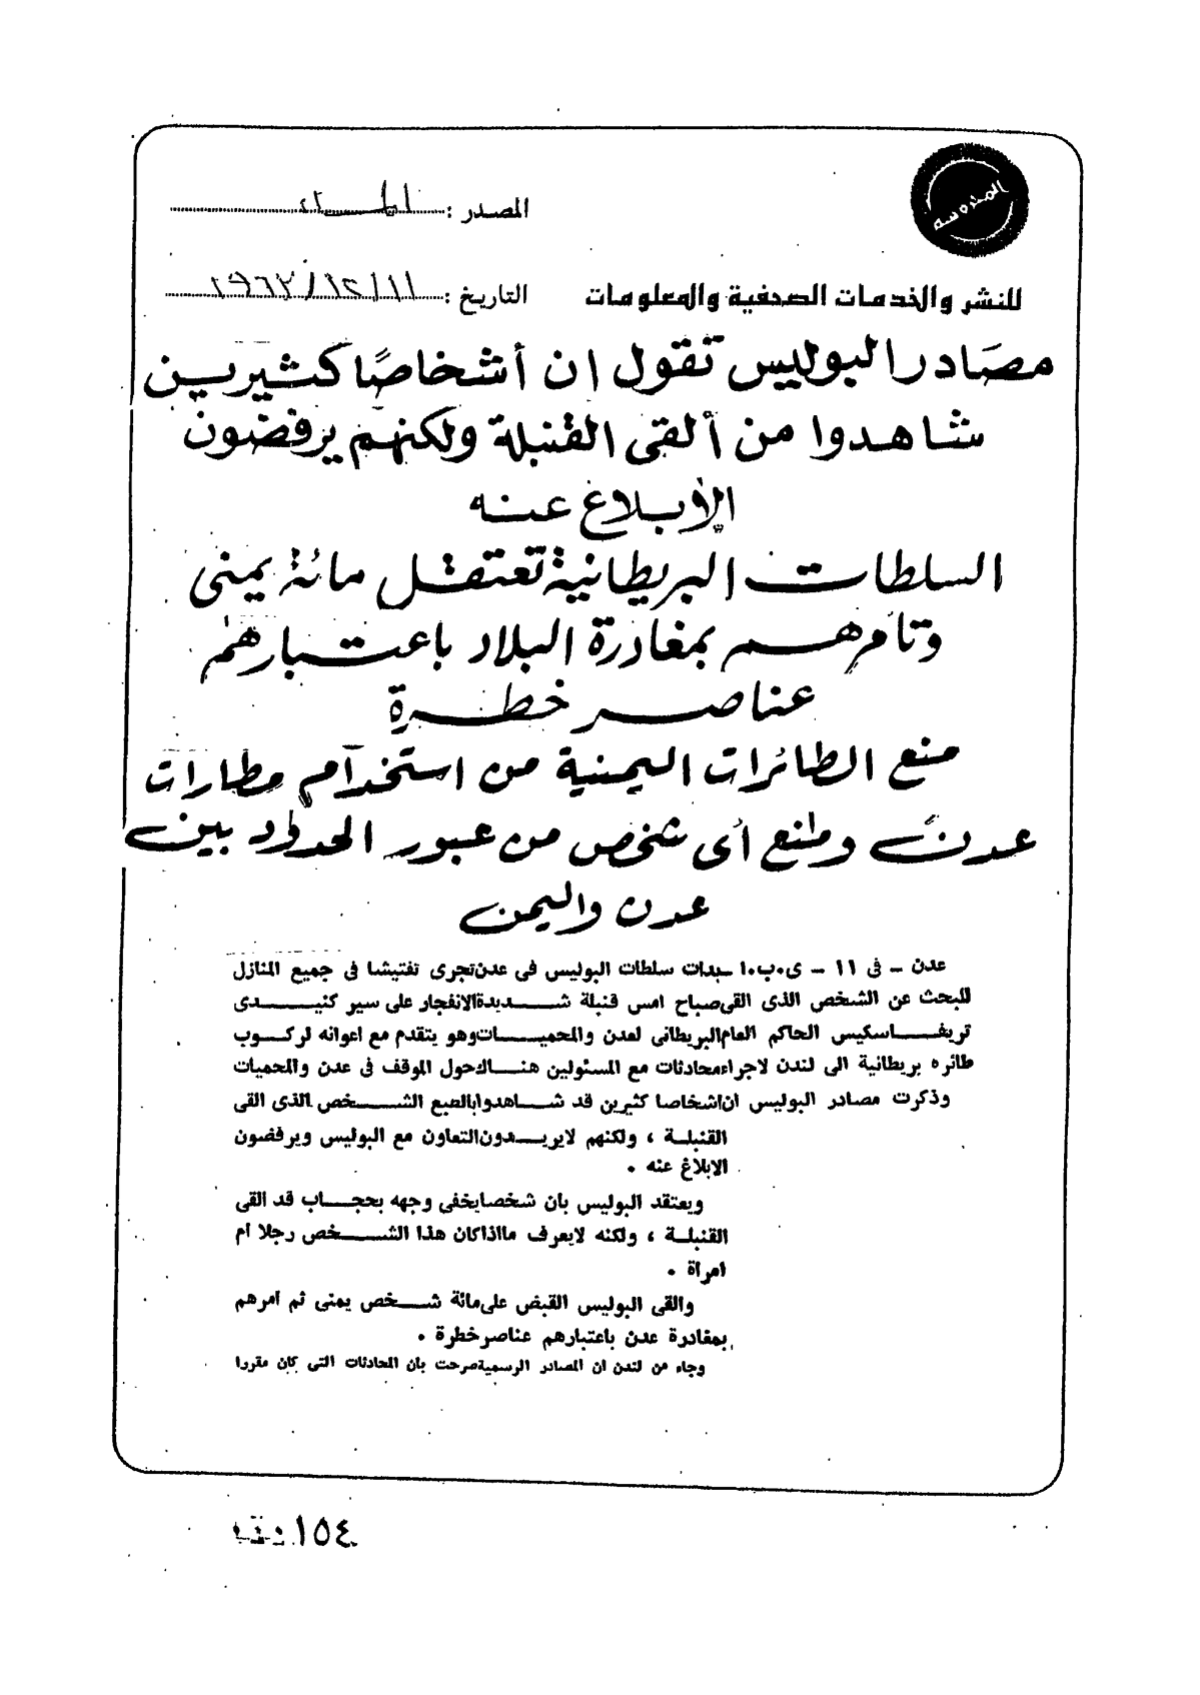 المحروسة
المصدر : المساء
للنشر والخدمات الصحفية والمعلومات التاريخ : ١٩٦٣/١٢/١١
مصادر البوليس تقول ان أشخاصًا كثيرين
شاهدوا من ألقى القنبلة ولكنهم يرفضون
الأبلاغ عنه
السلطات البريطانية تعتقل مائة يمنى
وتأمرهم بمغادرة البلاد باعتبارهم
عناصر خطرة
منع الطائرات اليمنية من استخدام مطارات
عدن ومنع أى شخص من عبور الحدود بين
عدن واليمن
عدن - فى ١١ - ى.ب.ا - بدات سلطات البوليس فى عدن تجرى تفتيشا فى جميع المنازل
للبحث عن الشخص الذى القى صباح امس قنبلة شديدة الانفجار على سير كنيدى
تريفاسكيس الحاكم العام البريطانى لعدن والمحميات وهو يتقدم مع اعوانه لركوب
طائره بريطانية الى لندن لاجراء محادثات مع المسئولين هناك حول الموقف فى عدن والمحميات
وذكرت مصادر البوليس ان اشخاصا كثيرين قد شاهدوا بالصبع الشخص الذى القى
القنبلة ، ولكنهم لايريدون التعاون مع البوليس ويرفضون
الابلاغ عنه .
ويعتقد البوليس بان شخصا يخفى وجهه بحجاب قد القى
القنبلة ، ولكنه لايعرف مااذا كان هذا الشخص رجلا ام
امراة .
والقى البوليس القبض على مائة شخص يمنى ثم امرهم
بمغادرة عدن باعتبارهم عناصر خطرة .
وجاء من لندن ان المصادر الرسمية صرحت بان المحادثات التى كان مقررا
١٥٤